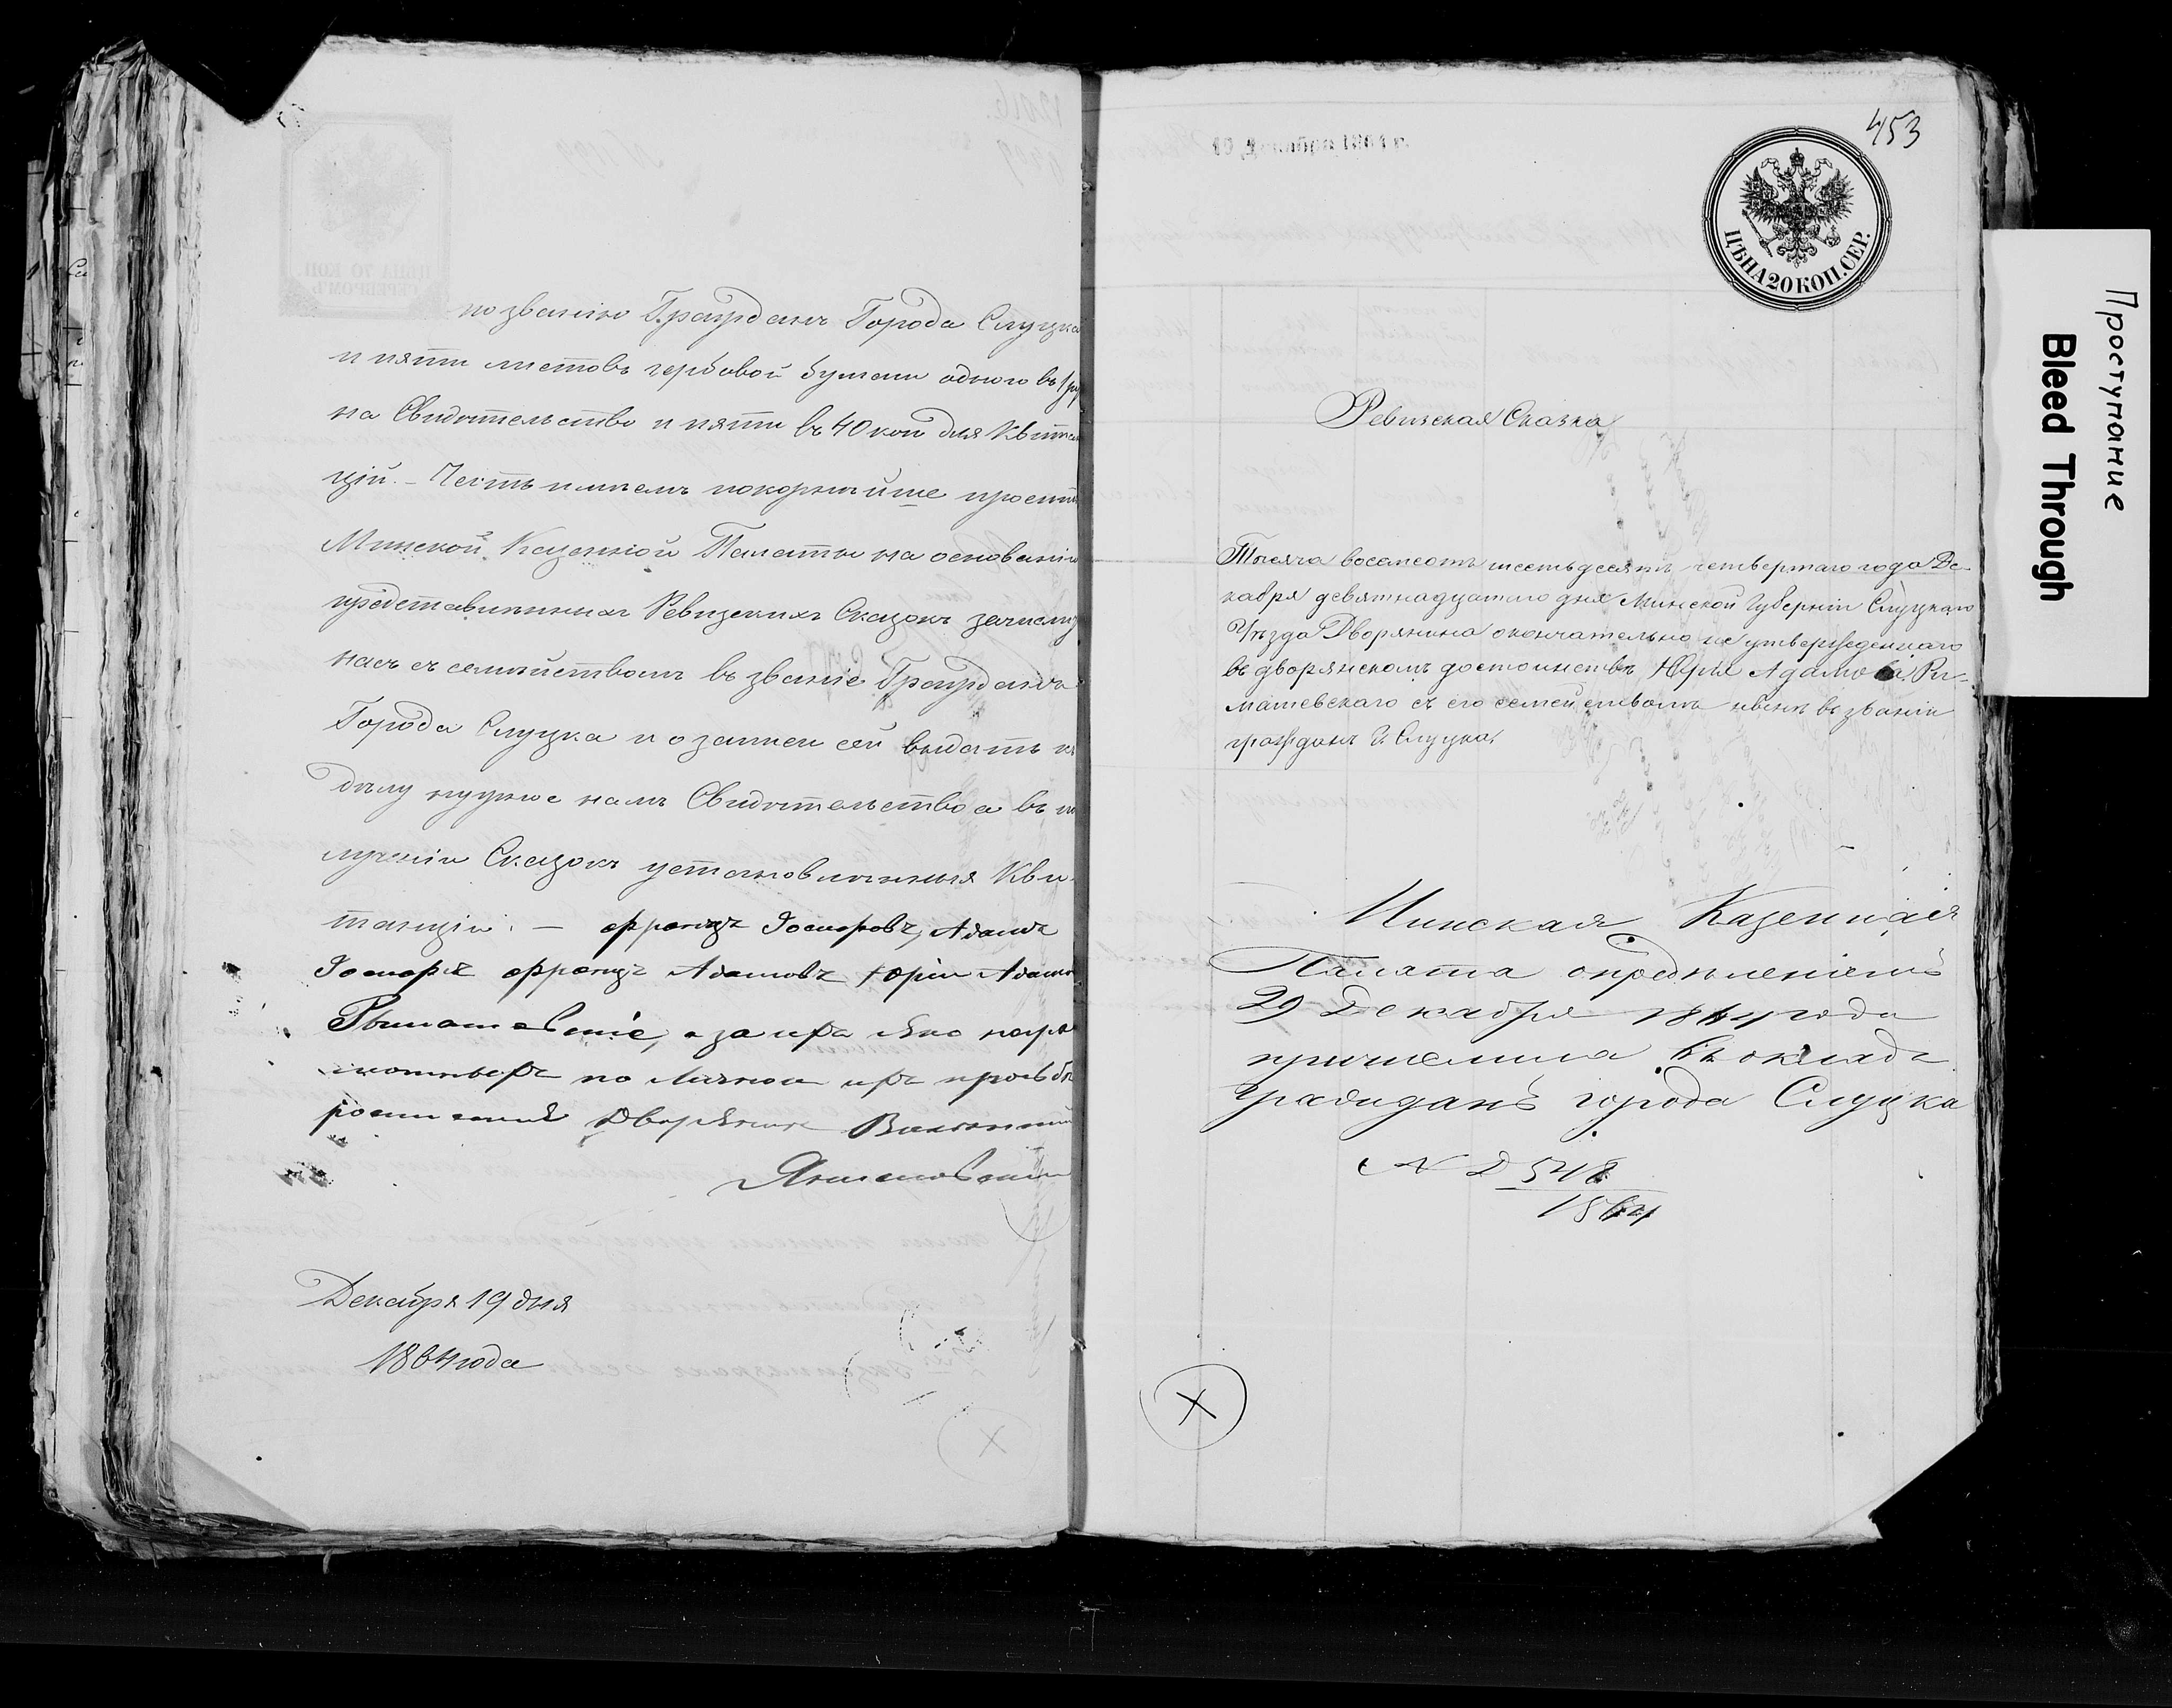 по званію Гражданъ Города Слуцка
и пяти листовъ гербовой бумаги одного въ 1 р
на Свидетельство и пяти въ 40 коп для Квитан
цій. – Честь имѣемъ покорнѣйше просить
Минской Казенной Палаты на основаніи
представленныхъ Ревизскихъ Сказокъ
насъ съ семействомъ въ званіе Гражданъ
Города Слуцка и о записи сей выдать
нужное намъ Свидетельство а въ по
лученіи Сказокъ установленныя Кви
танціи. – Францъ Іосифовъ, Адамъ
Францъ Адамовъ Юрій
по личной ихъ прозьбѣ
Дворянинъ
Декабря 19 дня
1864 года
453
19 Декабря 1864 г.
ЦѢНА 20 КОП. СЕР.
Ревизская Сказка
Тысяча восемсотъ шестьдесятъ четвертаго года Де-
кабря девятнадцатого дня Минской Губерніи Слуцкаго
Уѣзда Дворянина окончательно не утвержденнаго
въ дворянскомъ достоинствѣ Юрія Адамова Ри-
машевскаго съ его семействомъ въ званіи
гражданъ Г. Слуцка.
Минская Казенная
Палата опредѣленіемъ
29 Декабря 1864 года
причислила въ окладъ
гражданъ города Слуцка
N Д 548
1864
X
Проступание
Bleed Through